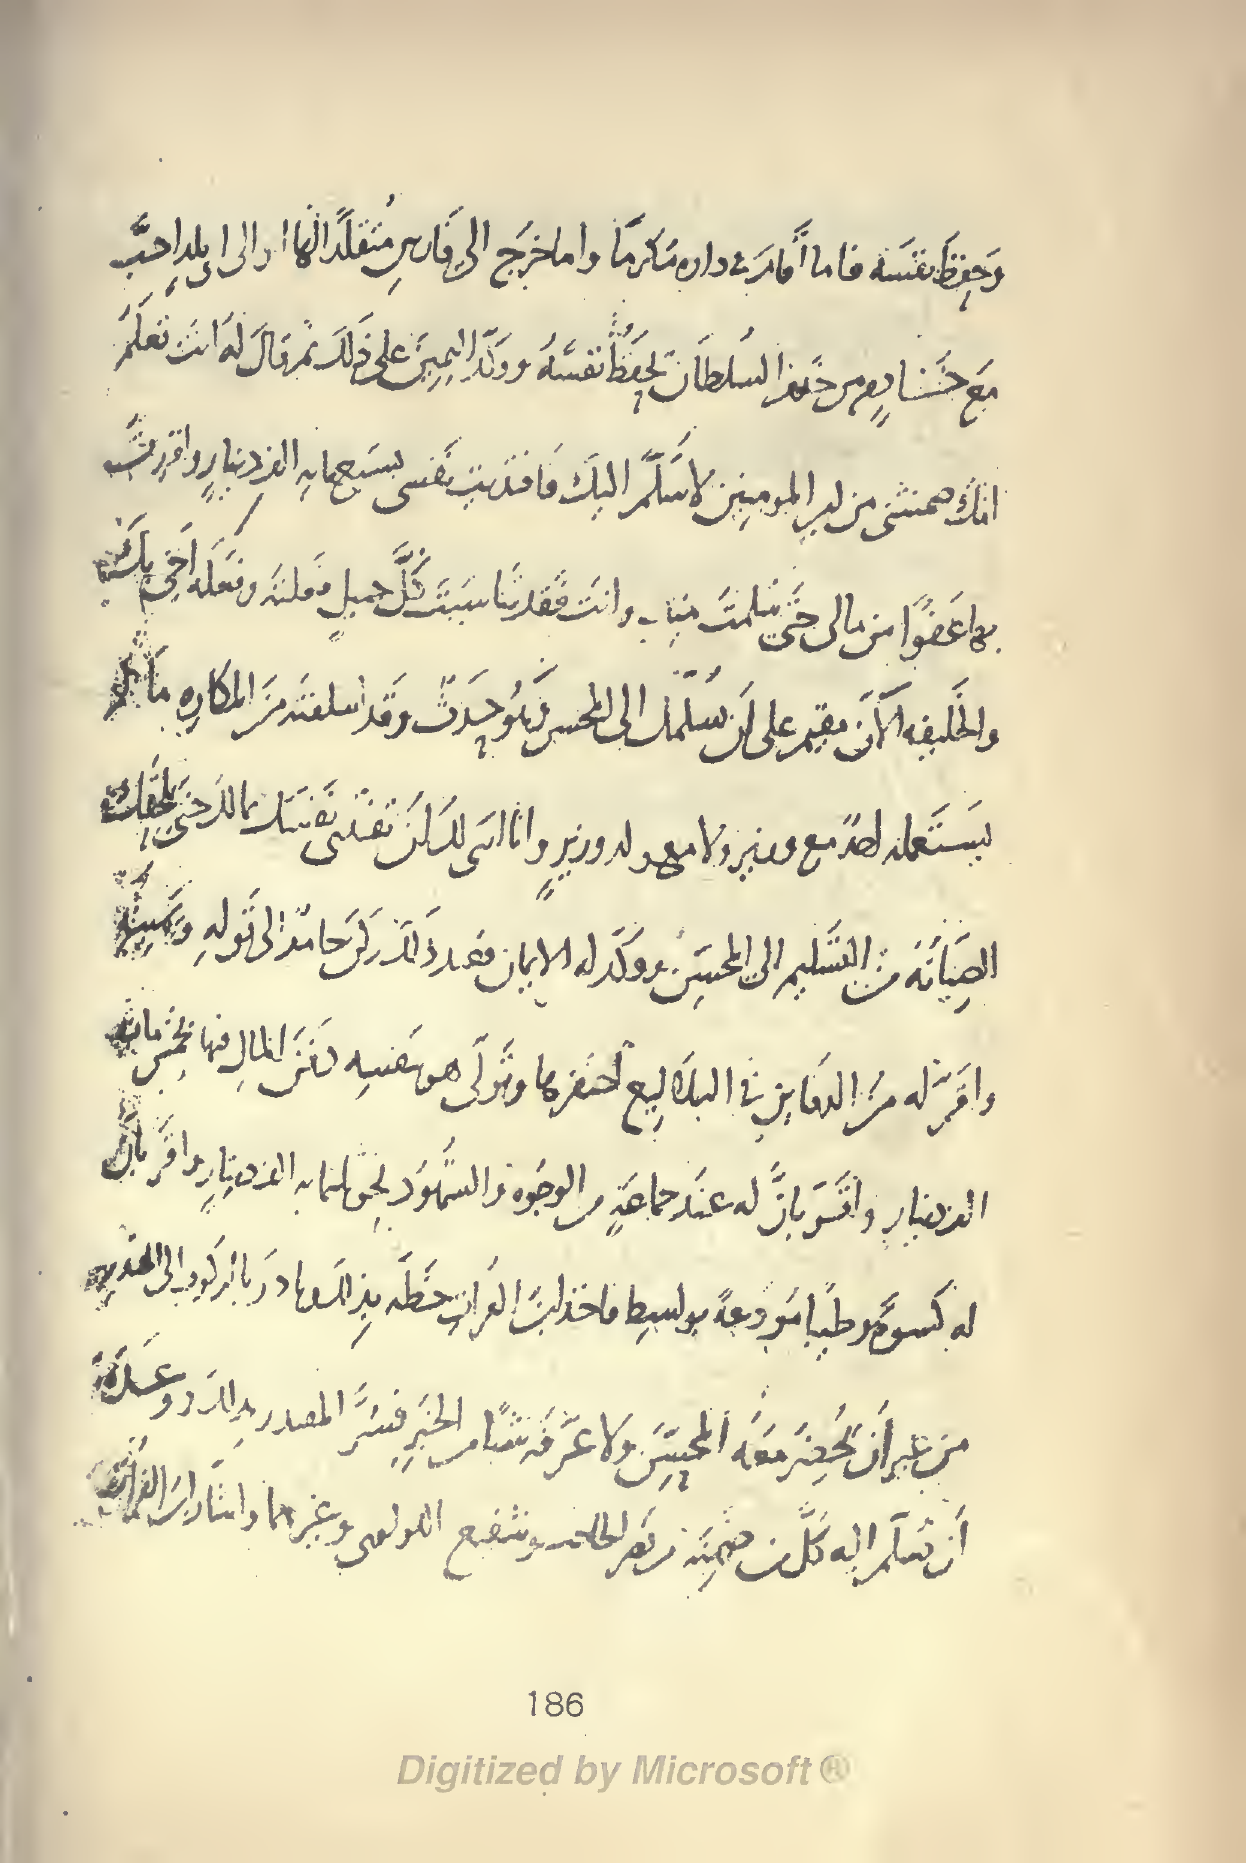 وَحِفِظَ نفسَه فاما أَقامَ فى داره مَكرمًا واما خرَج الى فَارسِ مُتقلّدًا لها او الى اى بلدٍ احبَّ
مَعَ خادمٍ من خدم السُلطَان يحفظُ نفسَهُ ووكّد اليمِينَ على ذَلك ثم قالَ لهُ انتَ تعلَمُ
انكَ ضمنتنى من امير المومنِين لاسَلَّم اليكَ فافتديتُ نفسى بسبع مايه الف دينارٍ واقررتُ
بها عَفوًا من مالى حَتَّى سَلمتُ منك وانتَ فقد تناسَيتَ كُلَّ جميلٍ فعلتَه وفعَله اخى بك
والخَليفه الآنَ مقيم على أن يسَلّمك الى المحسن وهُو حدَثٌ وقَد اسلفتَه مَنَ المكارِه مَا لم
يستَعمله احدٌ مع وزيرٍ ولا مع ولد وزيرٍ وانا ارى لك أَن تفتدى نَفسَك بمالك حتى
الصِيَانَهُ من التَسليم الى المحسِن ووَكّد له الايمان فعند ذلك ركَن حامدٌ الى قَوله
واقرّ له منَ الدفاين فى البلاليع احتفرها وتَولّى هو بنفسِه دَفنَ المالِ فيها بخمس مايه
الف دينارٍ واقَرّ بانَّ له عنَد جماعَةٍ من الوجُوه والشهُود نحو ثلثمايه الف دينارٍ واقَرّ بأن
له كسوَةً وطيبًا مَودعةً بواسِط فاخذ ابنُ الفراتِ خَطّه بذلك وبادرَ بالركُوب الى المقتدر
مِن غير أَن يُحضِرَ معَهُ المُحسِّنَ ولا عَرَّفَه شَيئًا من الخبَرِ فسُرَّ المقتدر بذلك ووعَدَهُ
أَن يُسَلّم اليه كلَّ من ضمِنَه من نصرٍ الحاجب وشفيع اللولوى وغيرهما واشارَ ابنُ الفراتِ
186
Digitized by Microsoft ®